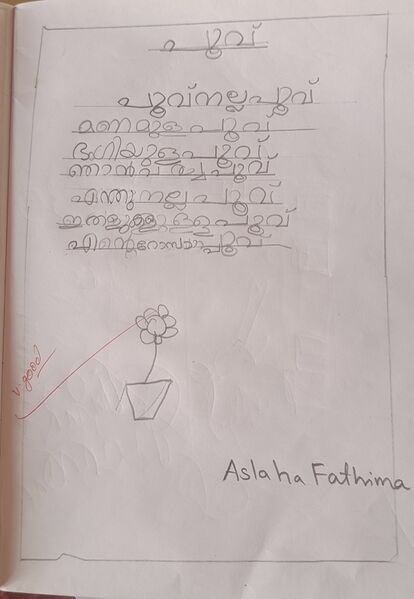 പൂവ്
പൂവ് നല്ല പൂവ്
മണമുള്ള പൂവ്
ഭംഗിയുള്ള പൂവ്
ഞാൻ വരച്ച പൂവ്
എന്തു നല്ല പൂവ്
ഇതളുകളുള്ള പൂവ്
എന്റെ റോസാപ്പൂവ്
v. good
Aslaha Fathima